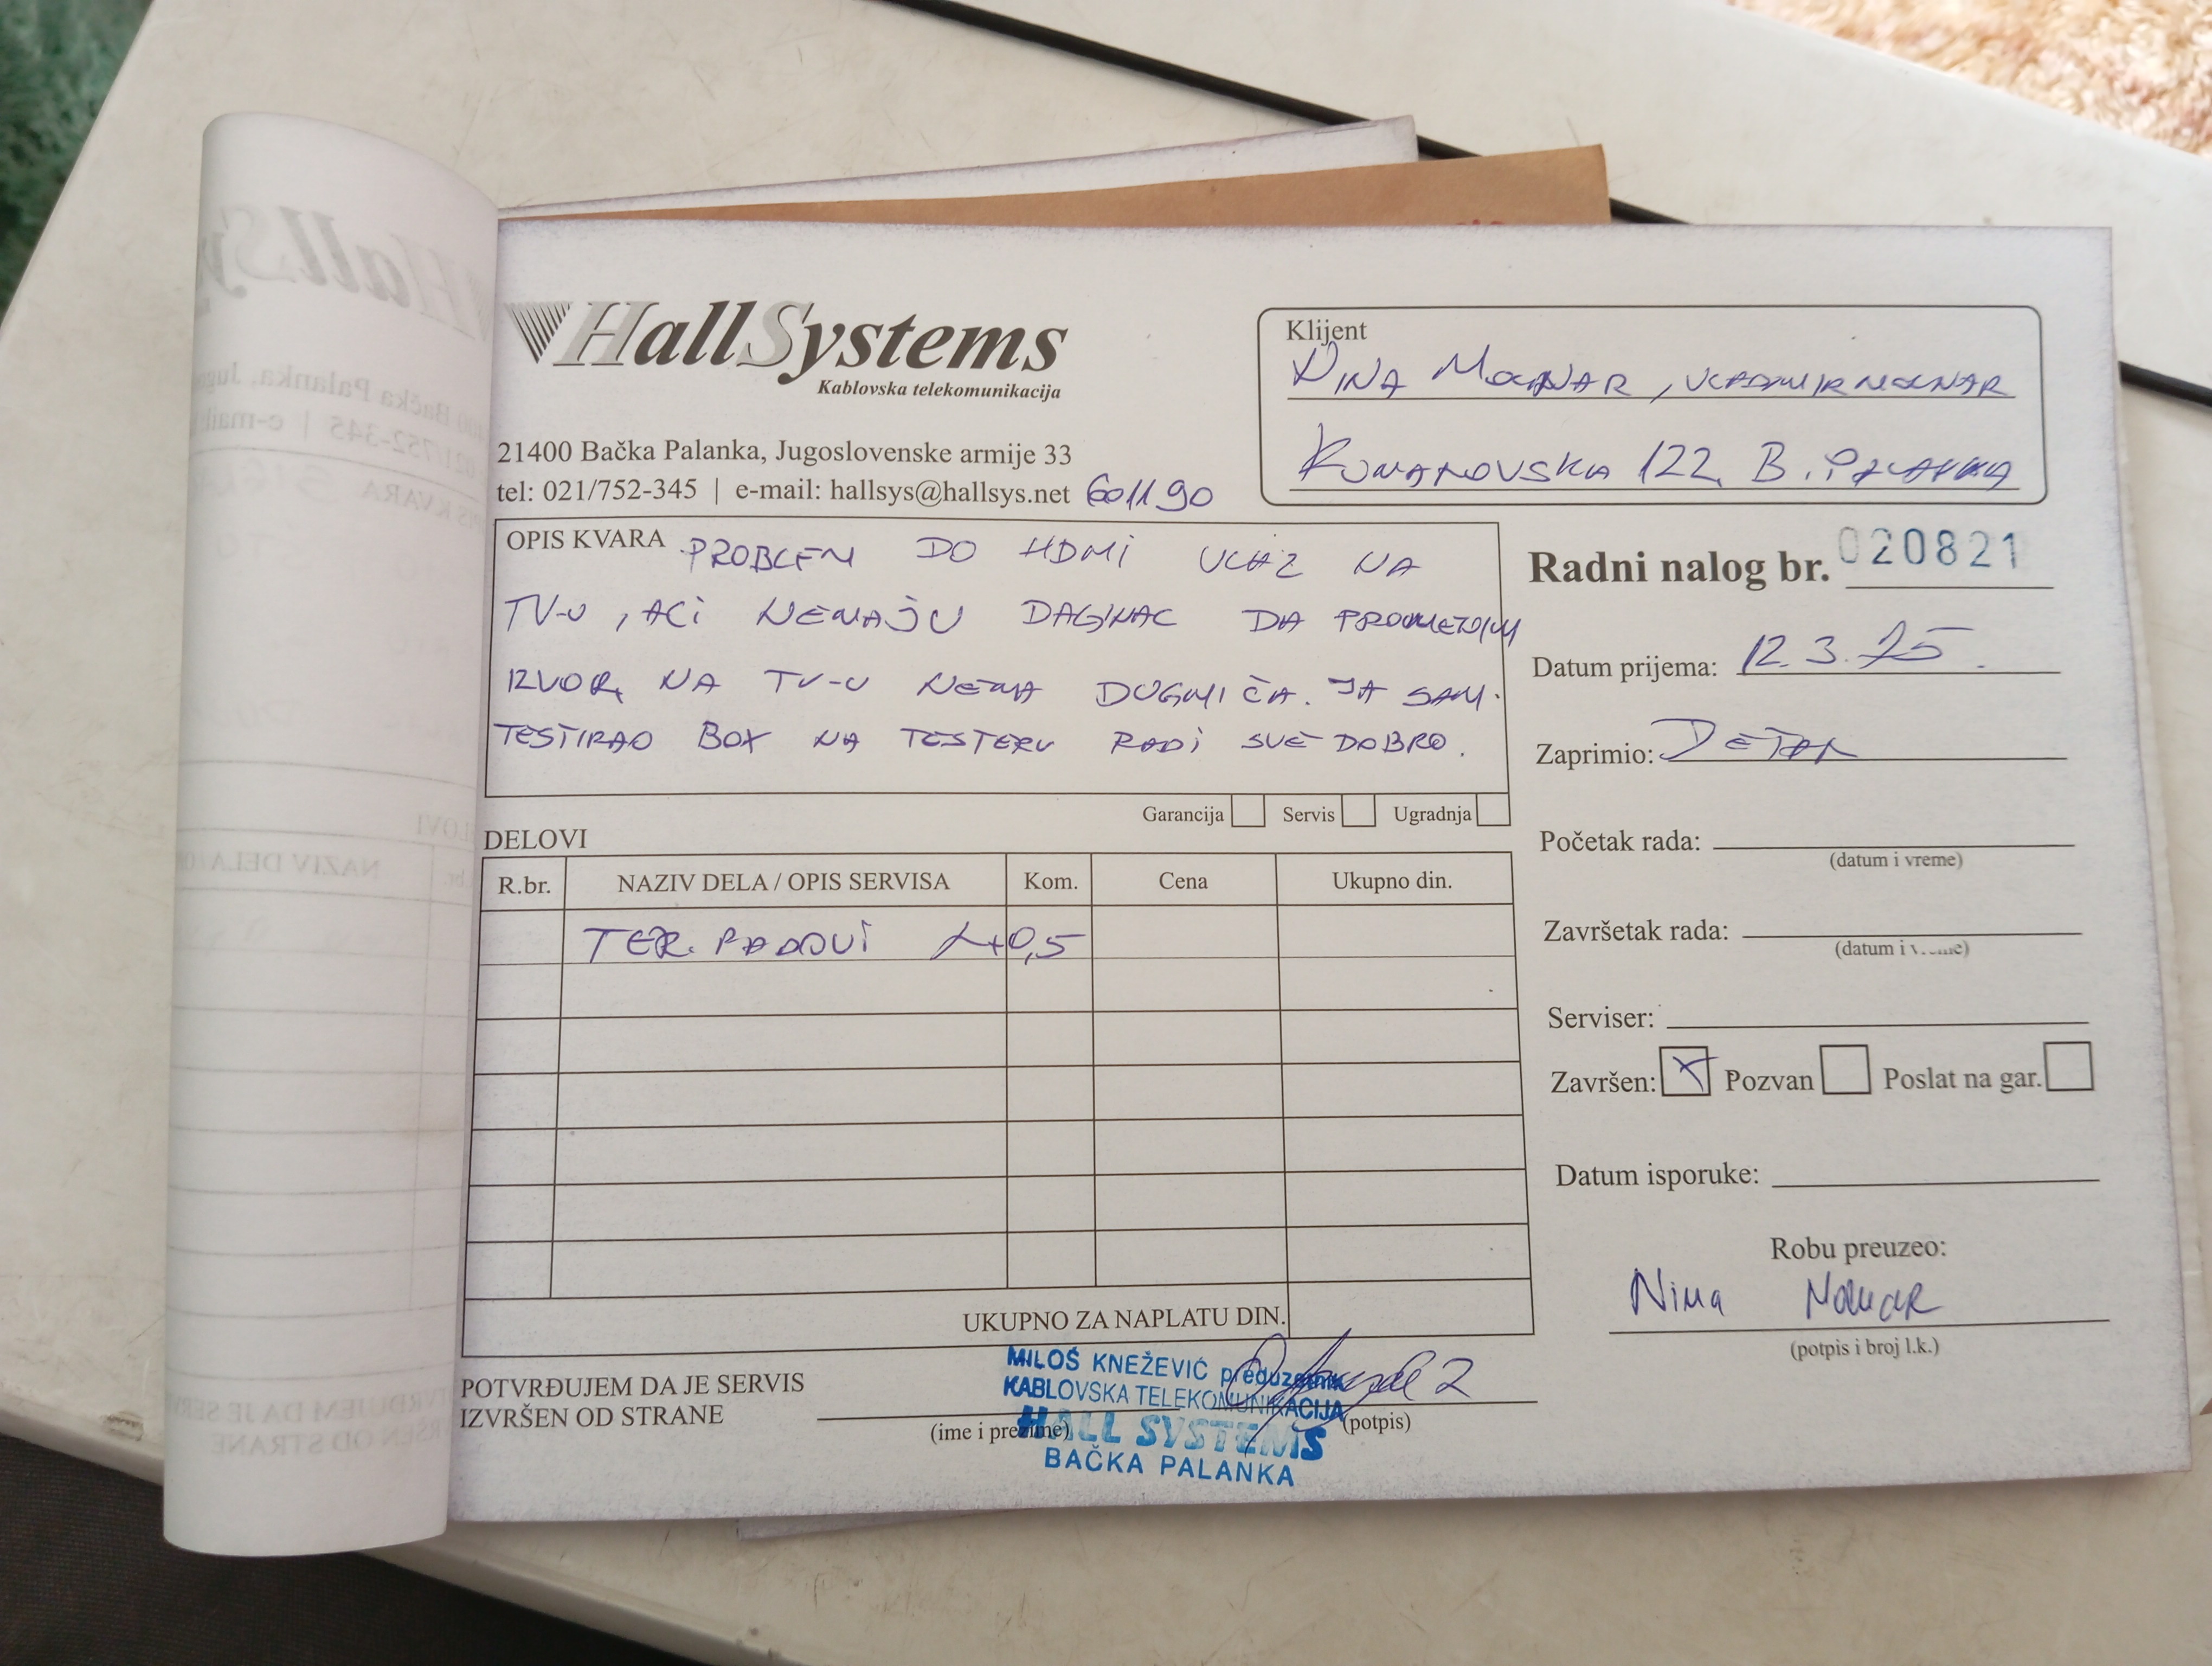 HallSystems
Kablovska telekomunikacija
21400 Bačka Palanka, Jugoslovenske armije 33
tel: 021/752-345 | e-mail: hallsys@hallsys.net 601190
Klijent
NINA MOLNAR, VLADIMIR MOLNAR
KUMANOVSKA 122, B. PALANKA
OPIS KVARA PROBLEM DO HDMI ULAZ NA
TV-U, ALI NEMAJU DALJINAC DA PROMENJUM
IZVOR, NA TV-U NEMA DUGMIĆA. JA SAM
TESTIRAO BOX NA TESTERU RADI SVE DOBRO.
Garancija Servis Ugradnja
Radni nalog br. 020821
Datum prijema: 12.3.25.
Zaprimio:
Početak rada:
(datum i vreme)
Završetak rada:
(datum i vreme)
Serviser:
Završen: X Pozvan Poslat na gar.
Datum isporuke:
Robu preuzeo:
Nina Molnar
(potpis i broj l.k.)
DELOVI
R.br. NAZIV DELA / OPIS SERVISA Kom. Cena Ukupno din.
TER. RADOVI 1+0,5
UKUPNO ZA NAPLATU DIN.
POTVRĐUJEM DA JE SERVIS
IZVRŠEN OD STRANE
(ime i prezime)
(potpis)
MILOŠ KNEŽEVIĆ preduzetnik
KABLOVSKA TELEKOMUNIKACIJA
HALL SYSTEMS
BAČKA PALANKA